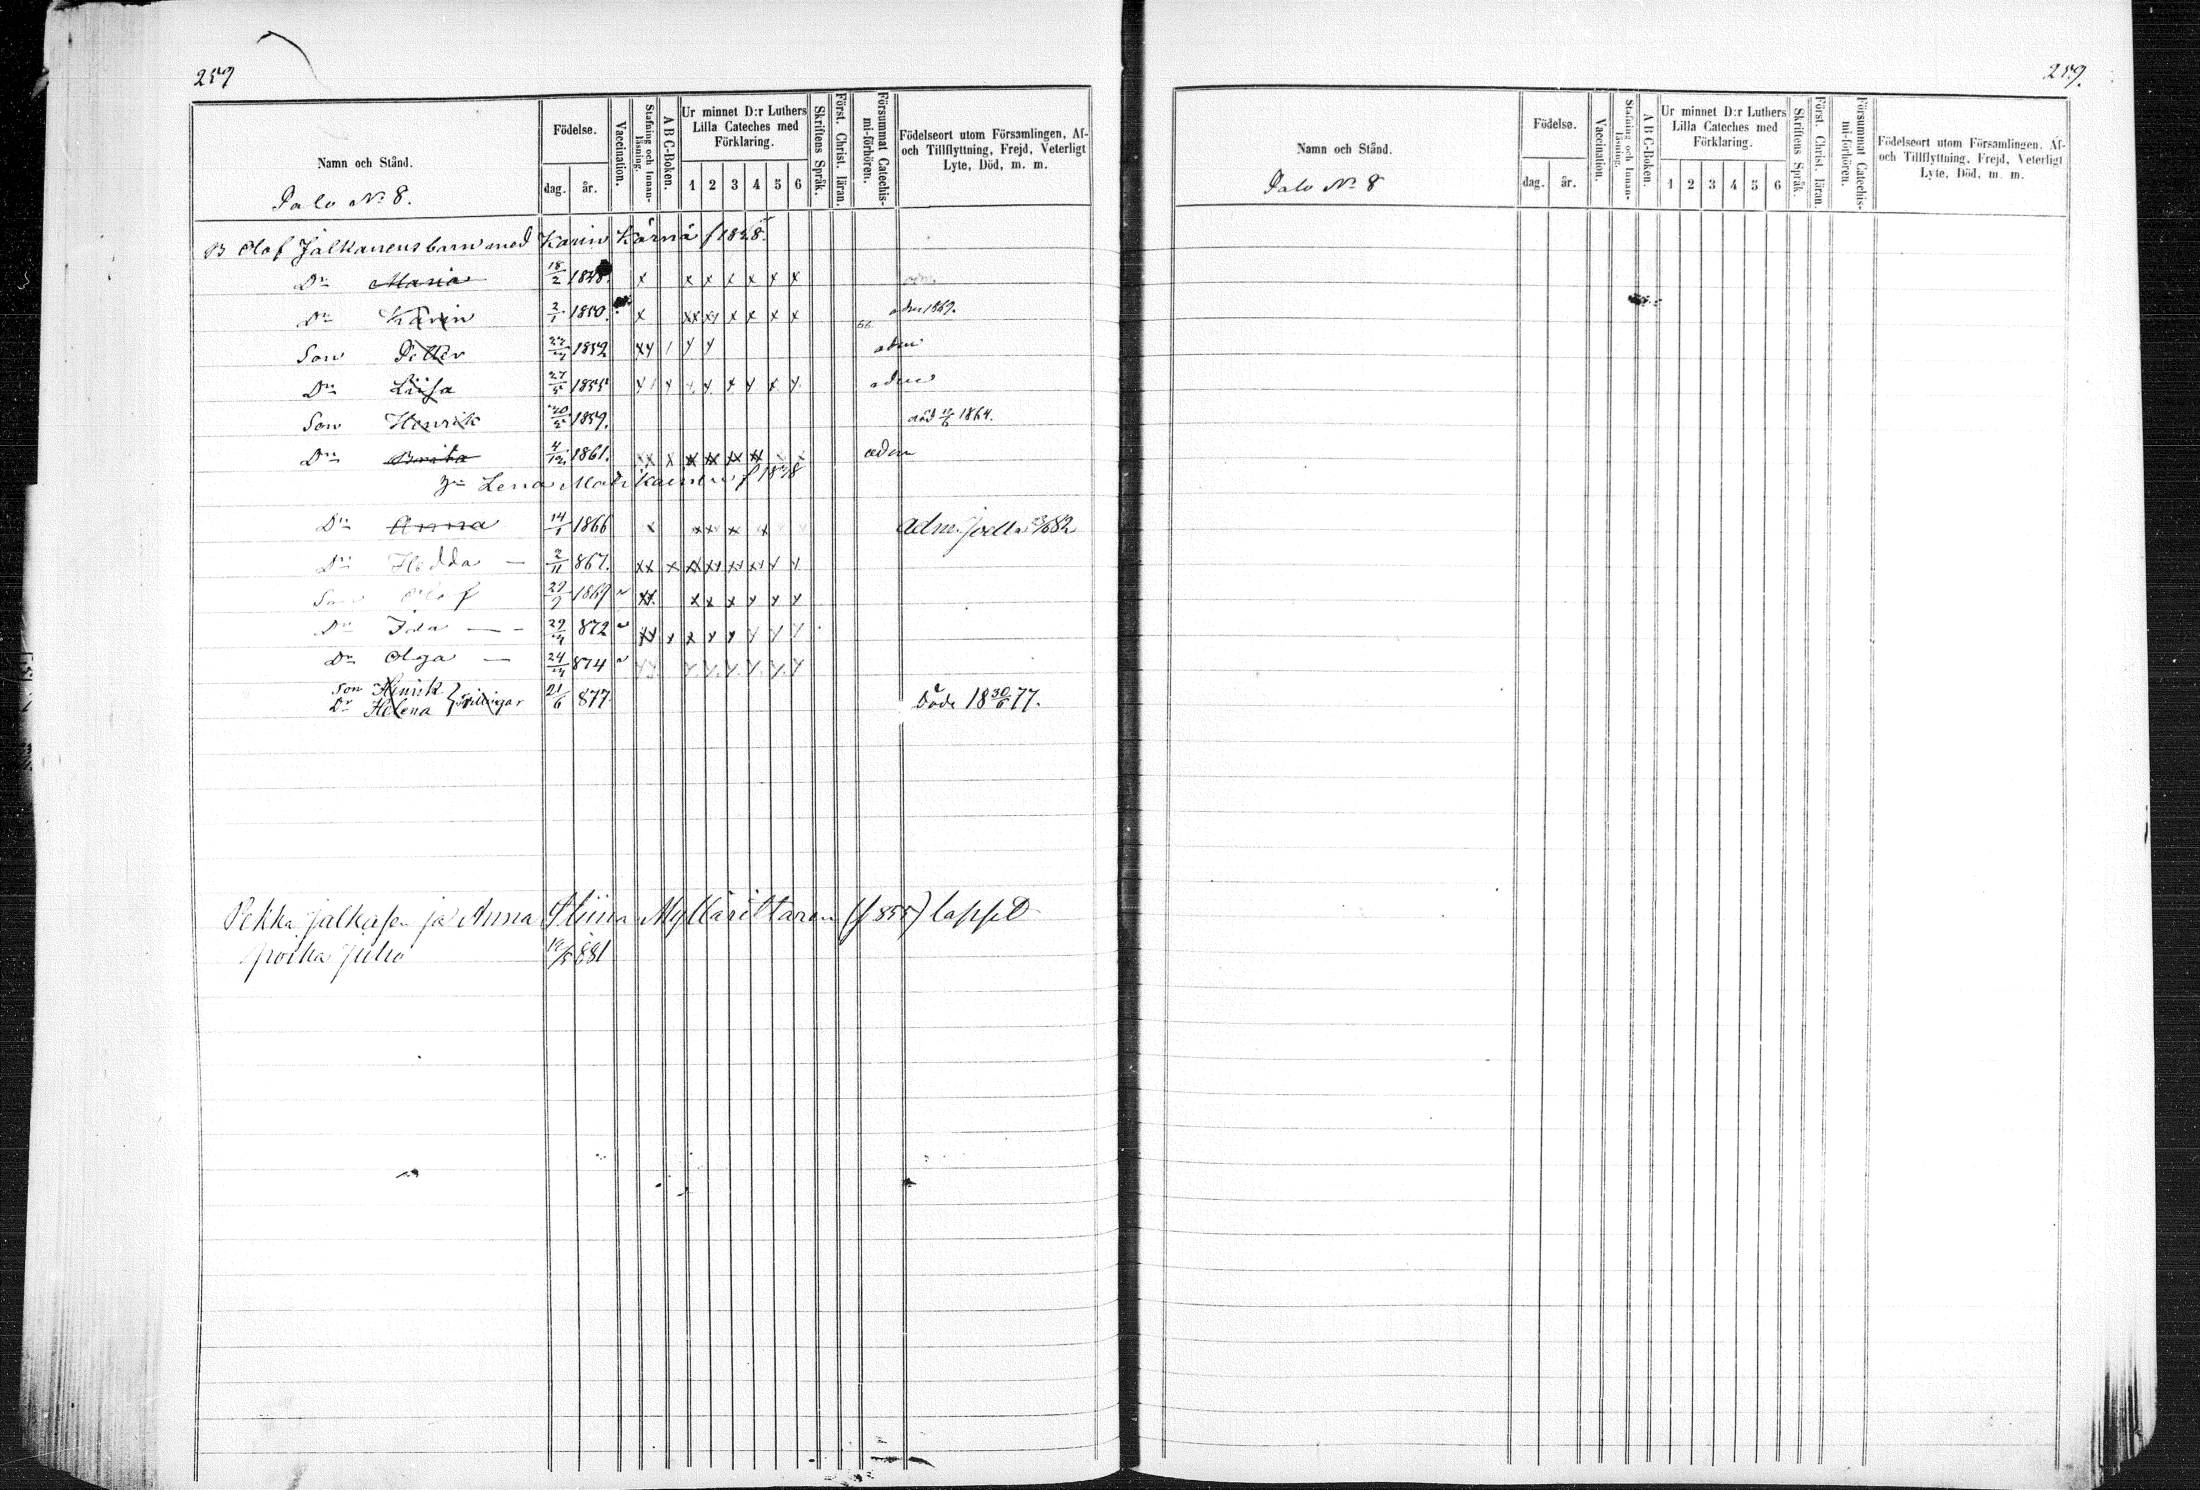 257
Namn och Stånd.
Födelse.
dag. år.
Vaccination.
Stafning och Innanläsning.
A B C-Boken.
Ur minnet D:r Luthers Lilla Cateches med Förklaring.
1 2 3 4 5 6
Skriftens Språk.
Först. Christ. läran.
Försummat Catechismi-förhören.
Födelseort utom Församlingen, Af- och Tillflyttning, Frejd, Veterligt Lyte, Död, m. m.
Palo No 8.
B Olof Jalkanens barn med Karin Kärnä f 1828.
Dr Maria 18/2 1848. x x x x x x x
Dr Karin 2/1 1850. x xx xx x x x x adm 1869.
Son Petter 1852 xx 1 x x adm
Dr Liisa 27/5 1855 adm
Son Henrik 20/5 1859. död 1864.
Dr Brita 4/12 1861. xx x xx xx xx xx adm
Lena f 1838
Dr Anna 14/1 1866 x xx x x adm 682
Dr Hedda — 2/11 867. xx x xx xx xx xx x x
Son Olof 29/9 1869 xx x x x x x x
Dr Ida — 872 xx x x x x x x x
Dr Olga — 874
Son Henrik
Dr Helena } Tvillingar 21/6 877. Döde 18 30/6 77.
Pekka Jalkasen ja Anna Stiina Myllärittaren (f 855) lapset
poika Juho 881
259.
Namn och Stånd.
Födelse.
dag. år.
Vaccination.
Stafning och Innanläsning.
A B C-Boken.
Ur minnet D:r Luthers Lilla Cateches med Förklaring.
1 2 3 4 5 6
Skriftens Språk.
Först. Christ. läran.
Försummat Catechismi-förhören.
Födelseort utom Församlingen, Af- och Tillflyttning, Frejd, Veterligt Lyte, Död, m. m.
Palo No 8